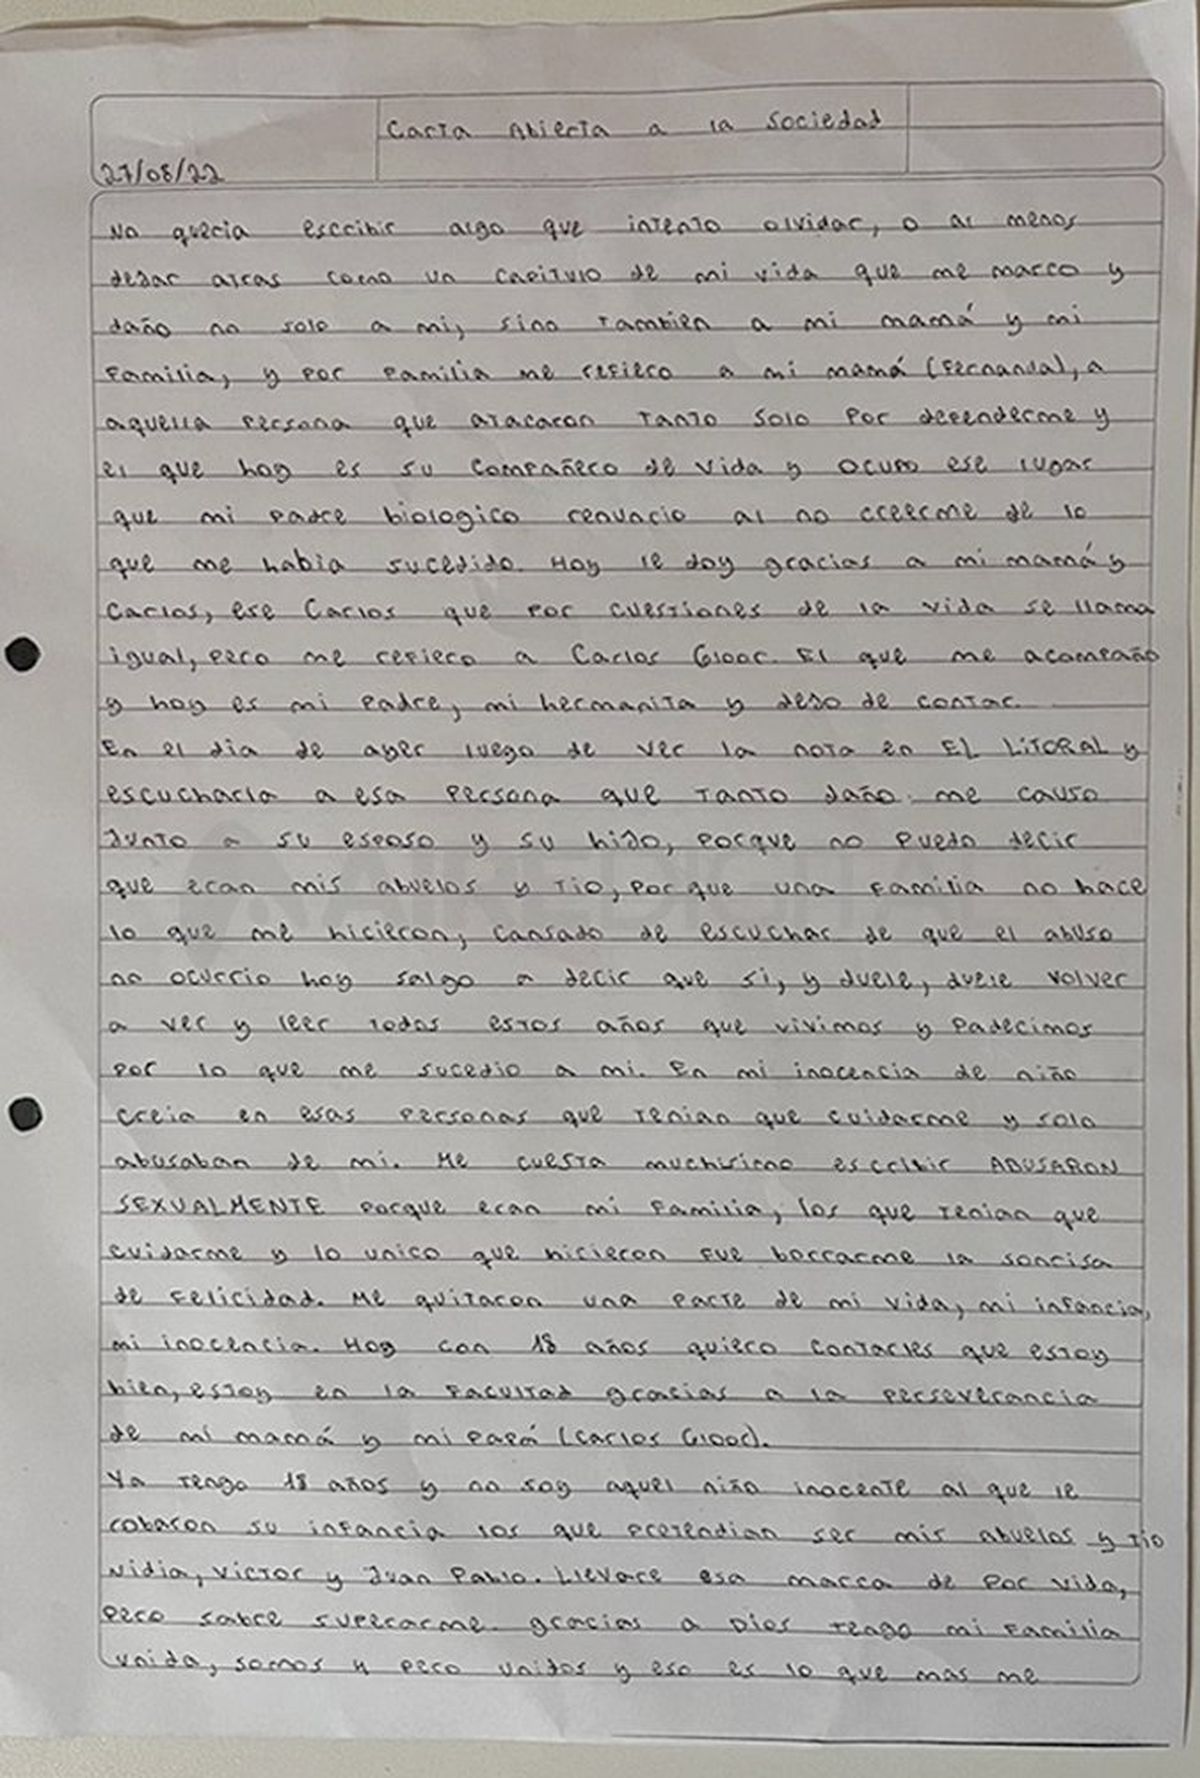 Carta Abierta a la Sociedad
27/08/22
No queria escribir algo que intento olvidar, o al menos
dejar atras como un capitulo de mi vida que me marco y
daño no solo a mi, sino tambien a mi mamá y mi
familia, y por familia me refiero a mi mamá (Fernanda), a
aquella persona que atacaron tanto solo por defenderme y
el que hoy es su compañero de vida y ocupo ese lugar
que mi padre biologico renuncio al no creerme de lo
que me habia sucedido. Hoy le doy gracias a mi mamá y
Carlos, ese Carlos que por cuestiones de la vida se llama
igual, pero me refiero a Carlos Glooc. El que me acompaño
y hoy es mi padre, mi hermanita y dejo de contar.
En el dia de ayer luego de ver la nota en EL LITORAL y
escucharla a esa persona que tanto daño me causo
junto a su esposo y su hijo, porque no puedo decir
que eran mis abuelos y tio, por que una familia no hace
lo que me hicieron, cansado de escuchar de que el abuso
no ocurrio hoy salgo a decir que si, y duele, duele volver
a ver y leer todos estos años que vivimos y padecimos
por lo que me sucedio a mi. En mi inocencia de niño
creia en esas personas que tenian que cuidarme y solo
abusaban de mi. Me cuesta muchisimo escribir ABUSARON
SEXUALMENTE porque eran mi familia, los que tenian que
cuidarme y lo unico que hicieron fue borrarme la sonrisa
de felicidad. Me quitaron una parte de mi vida, mi infancia,
mi inocencia. Hoy con 18 años quiero contarles que estoy
bien, estoy en la facultad gracias a la perseverancia
de mi mamá y mi papá (Carlos Glooc).
Ya tengo 18 años y no soy aquel niño inocente al que le
robaron su infancia los que pretendian ser mis abuelos y tio
Nidia, Victor y Juan Pablo. Llevare esa marca de por vida,
pero sabre superarme. gracias a Dios tengo mi familia
unida, somos 4 pero unidos y eso es lo que mas me
AIREDIGITAL